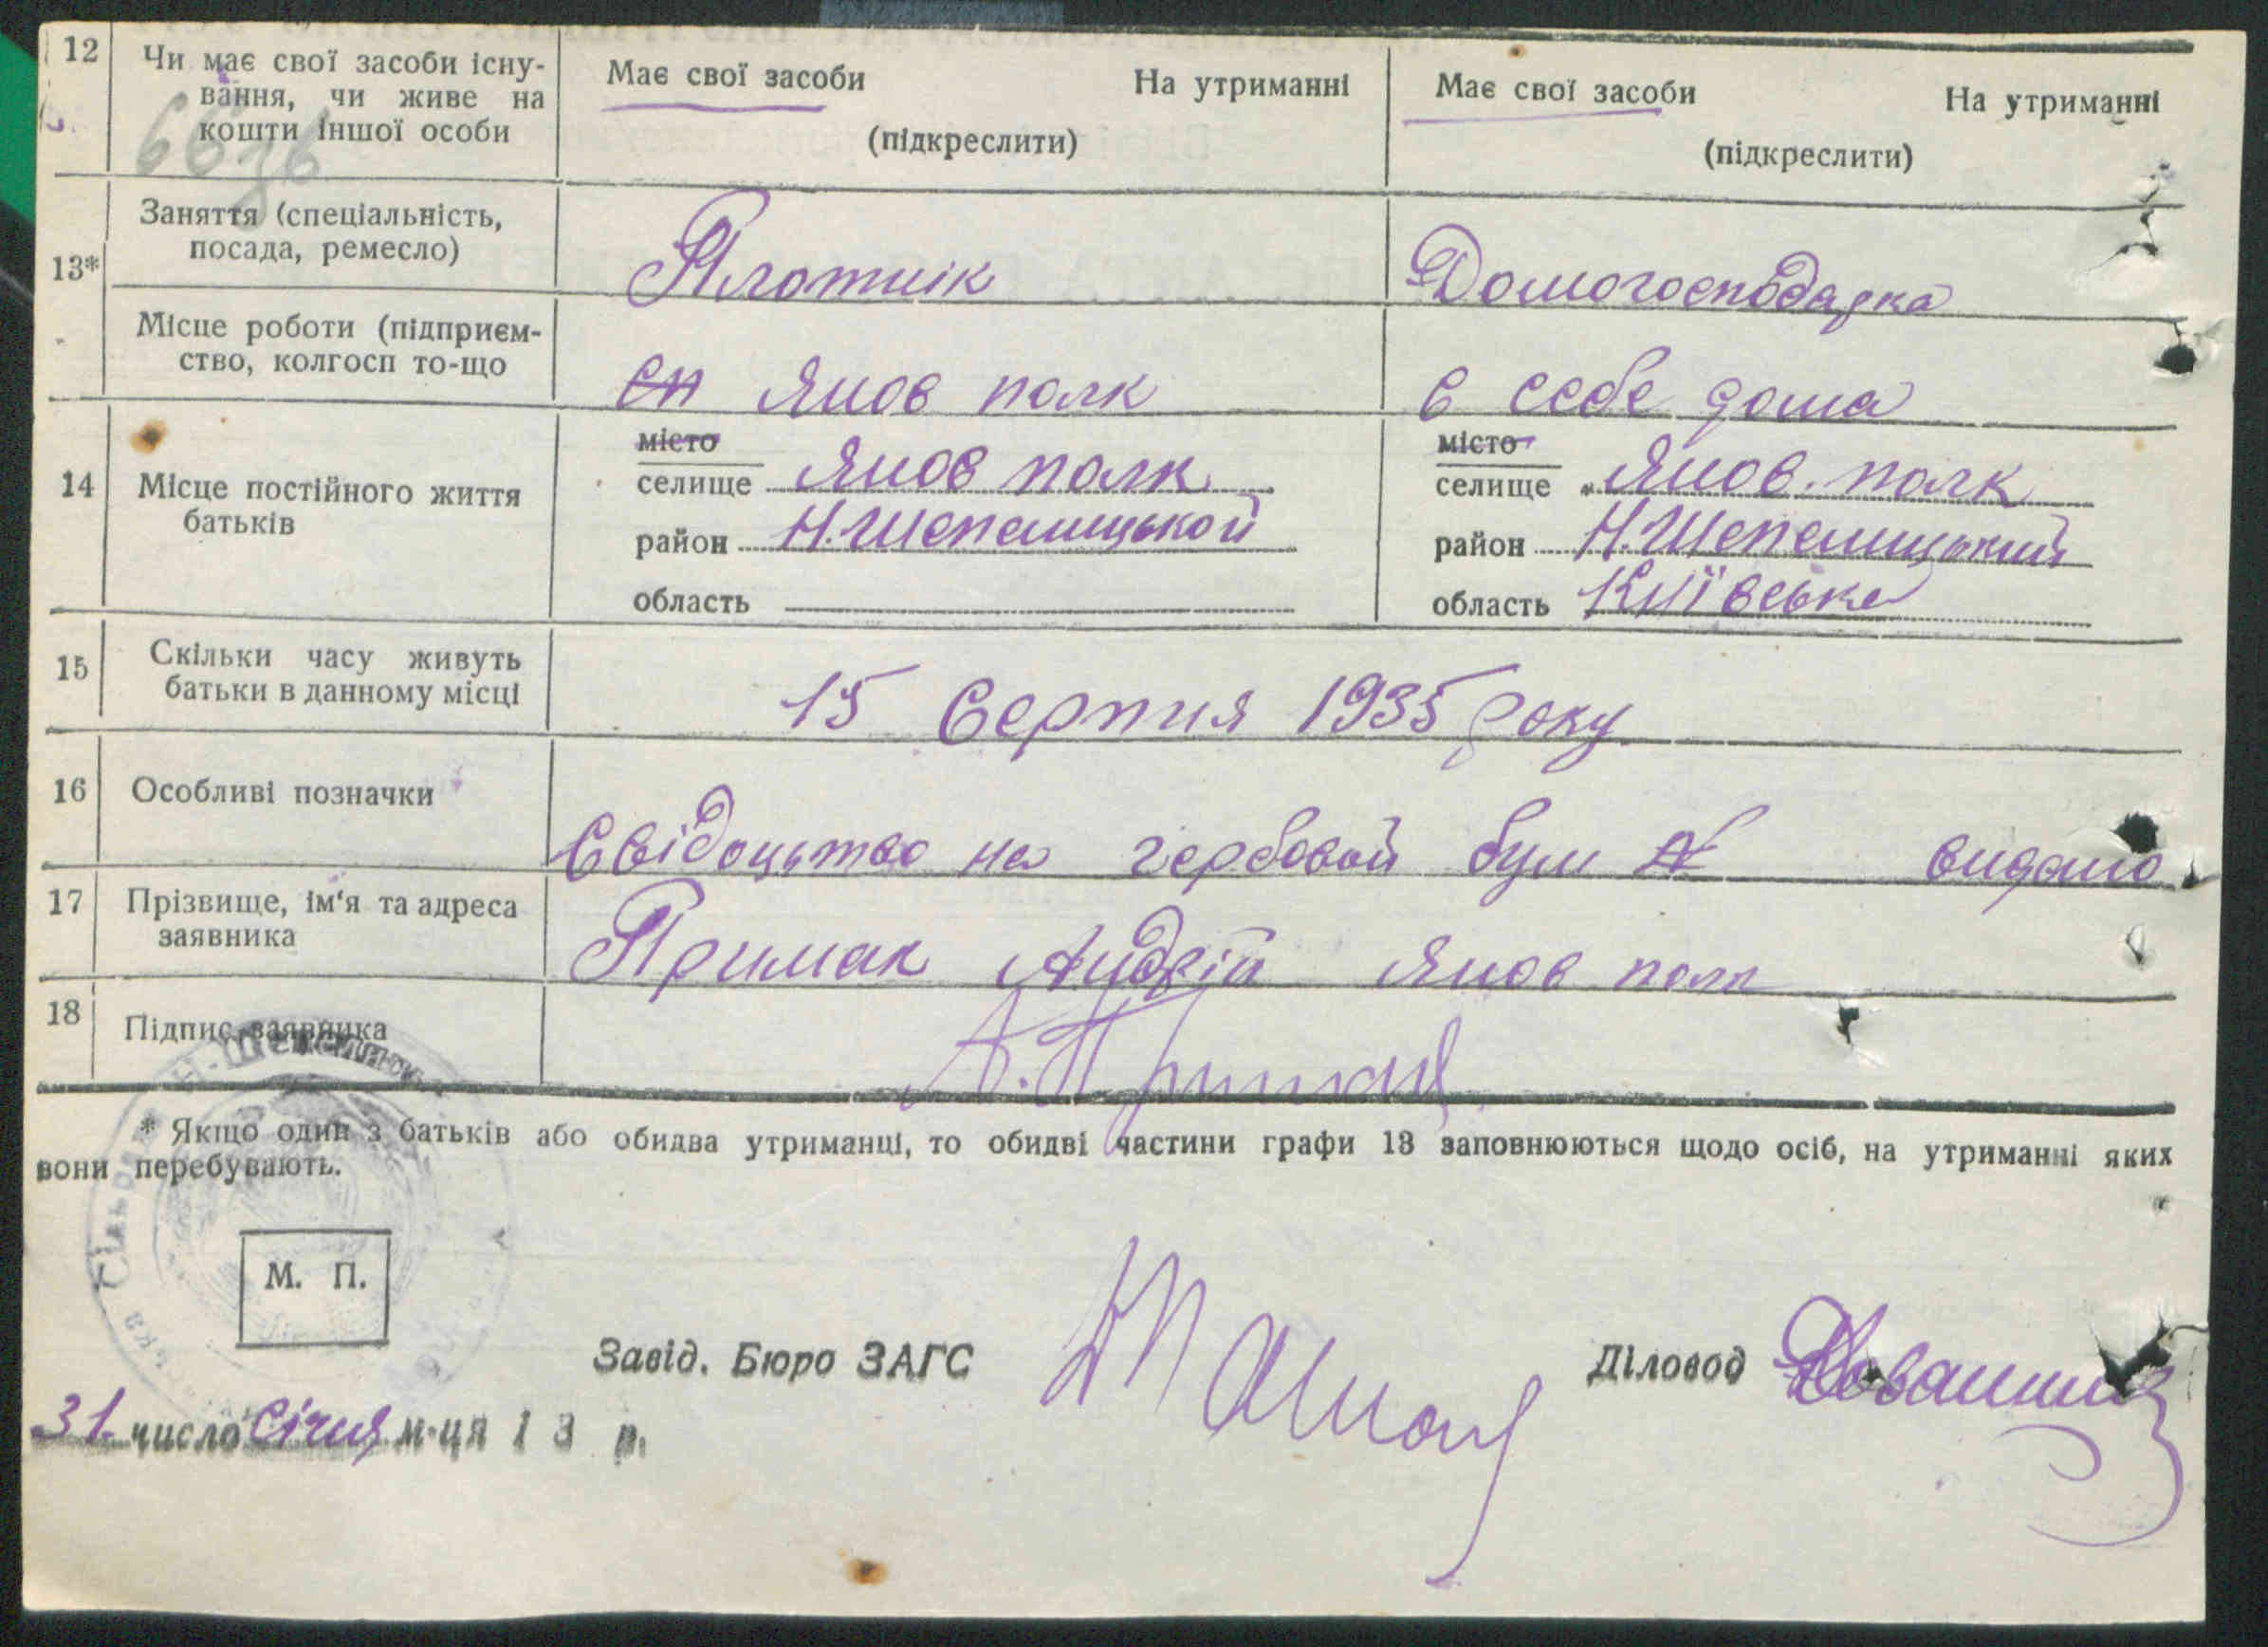 12 Чи має свої засоби існу-
вання, чи живе на
кошти іншої особи
Має свої засоби На утриманні
(підкреслити)
Має свої засоби На утриманні
(підкреслити)
13*
Заняття (спеціальність,
посада, ремесло)
Плотнік
Домогосподарка
Місце роботи (підприєм-
ство, колгосп то-що
Янов полк
в себе дома
14 Місце постійного життя
батьків
місто
селище Янов полк
район Н.Шепелицькой
область
місто
селище Янов. полк
район Н.Шепелицький
область Київська
15 Скільки часу живуть
батьки в данному місці
15 Серпня 1935 року
16 Особливі позначки
Свідоцтво на гербовой бум № видано
17 Прізвище, ім'я та адреса
заявника
Примак Андрій Янов полк
18 Підпис заявника
А.Примак
* Якщо один з батьків або обидва утриманці, то обидві частини графи 13 заповнюються щодо осіб, на утриманні яких
вони перебувають.
М. П.
Завід. Бюро ЗАГС
Діловод
31 число Січня м-ця 1 3 р.